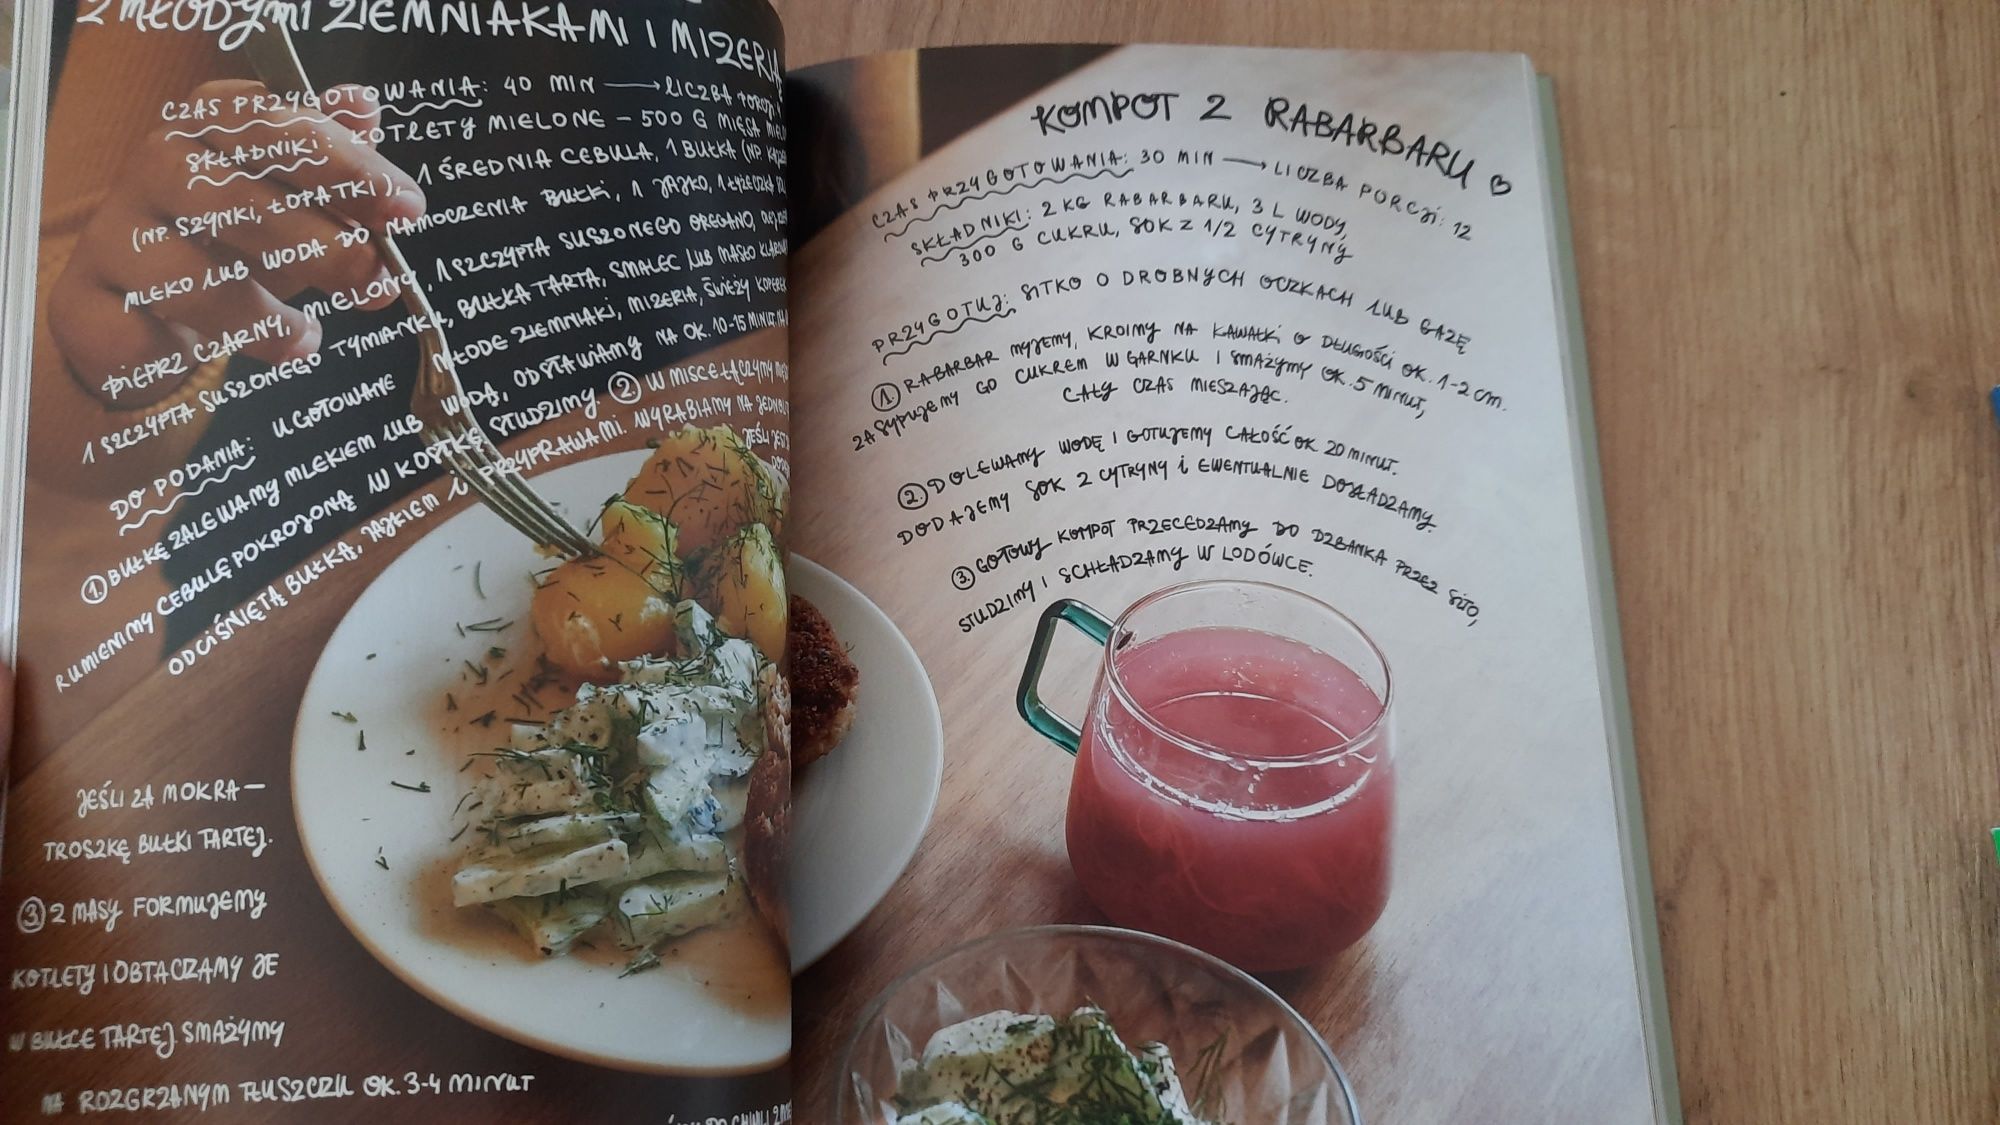 Z MŁODYMI ZIEMNIAKAMI I MIZERIĄ
CZAS PRZYGOTOWANIA: 40 MIN → LICZBA PORCJI: 4
SKŁADNIKI: KOTLETY MIELONE – 500 G MIĘSA
(NP. SZYNKI, ŁOPATKI), 1 ŚREDNIA CEBULA, 1 BUŁKA (NP.
MLEKO LUB WODA DO NAMOCZENIA BUŁKI, 1 JAJKO, 1 ŁYŻECZKA
PIEPRZ CZARNY, MIELONY, 1 SZCZYPTA SUSZONEGO OREGANO,
1 SZCZYPTA SUSZONEGO TYMIANKU, BUŁKA TARTA, SMALEC LUB MASŁO
DO PODANIA: UGOTOWANE MŁODE ZIEMNIAKI, MIZERIA, ŚWIEŻY KOPEREK
1. BUŁKĘ ZALEWAMY MLEKIEM LUB WODĄ, ODSTAWIAMY NA OK. 10-15 MINUT.
RUMIENIMY CEBULĘ POKROJONĄ W KOSTKĘ, STUDZIMY. 2 W MISCE ŁĄCZYMY
ODCIŚNIĘTĄ BUŁKĄ, JAJKIEM I PRZYPRAWAMI. WYRABIAMY NA
JEŚLI
JEŚLI ZA MOKRA –
TROSZKĘ BUŁKI TARTEJ.
3 Z MASY FORMUJEMY
KOTLETY I OBTACZAMY JE
W BUŁCE TARTEJ. SMAŻYMY
NA ROZGRZANYM TŁUSZCZU OK. 3-4 MINUT
KOMPOT Z RABARBARU ♡
CZAS PRZYGOTOWANIA: 30 MIN → LICZBA PORCJI: 12
SKŁADNIKI: 2 KG RABARBARU, 3 L WODY,
300 G CUKRU, SOK Z 1/2 CYTRYNY
PRZYGOTUJ: SITKO O DROBNYCH OCZKACH LUB GAZĘ
1. RABARBAR MYJEMY, KROIMY NA KAWAŁKI O DŁUGOŚCI OK. 1-2 CM.
ZASYPUJEMY GO CUKREM W GARNKU I SMAŻYMY OK. 5 MINUT,
CAŁY CZAS MIESZAJĄC.
2. DOLEWAMY WODĘ I GOTUJEMY CAŁOŚĆ OK 20 MINUT.
DODAJEMY SOK Z CYTRYNY I EWENTUALNIE DOSŁADZAMY.
3. GOTOWY KOMPOT PRZECEDZAMY DO DZBANKA PRZEZ SITO,
STUDZIMY I SCHŁADZAMY W LODÓWCE.